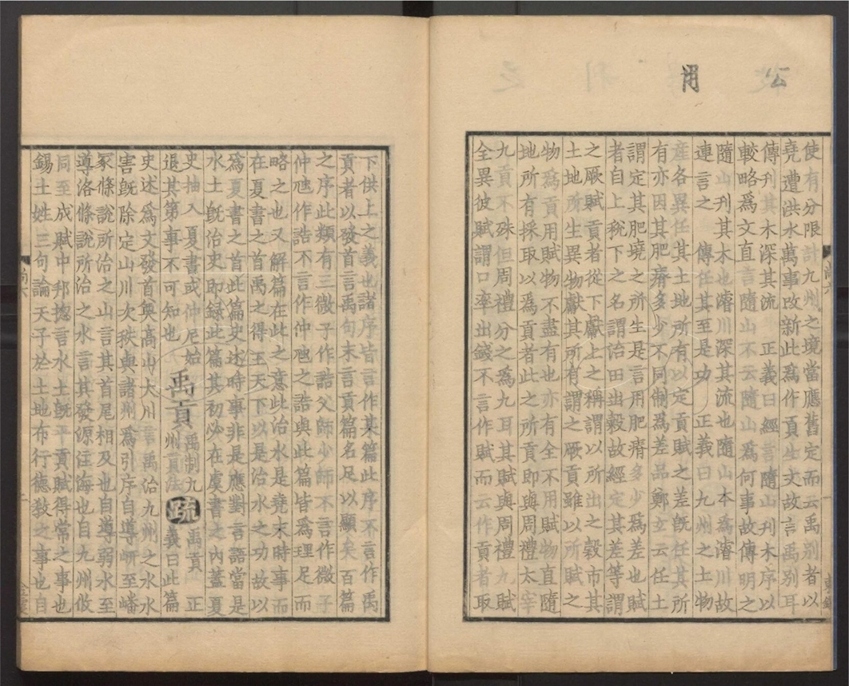 公
用
使有分限計九州之境當應舊定而云禹別者以
堯遭洪水萬事改新此爲作貢生文故言禹別耳
傳刊其木深其流 正義曰經言隨山刊木序以
較略爲文直言隨山不云隨山爲何事故傳明之
隨山刊其木也濬川深其流也隨山本爲濬川故
連言之 傳任其至是功 正義曰九州之土物
産各異任其土地所有以定貢賦之差旣任其所
有亦因其肥瘠多少不同制爲差品鄭玄云任土
謂定其肥墝之所生是言用肥瘠多少爲差也賦
者自上稅下之名謂治田出穀故經定其差等謂
之厥賦貢者從下獻上之稱謂以所出之穀市其
土地所生異物獻其所有謂之厥貢雖以所賦之
物爲貢用賦物不盡有也亦有全不用賦物直隨
地所有採取以爲貢者此之所貢即與周禮太宰
九貢不殊但周禮分之爲九耳其賦與周禮九賦
全異彼賦謂口率出錢不言作賦而云作貢者取
下供上之義也諸序皆言作某篇此序不言作禹
貢者以發首言禹句末言貢篇名足以顯矣百篇
之序此類有三微子作誥父師少師不言作微子
仲虺作誥不言作仲虺之誥與此篇皆爲理足而
略之也又解篇在此之意此治水是堯末時事而
在夏書之首禹之得王天下以是治水之功故以
爲夏書之首此篇史述時事非是應對言語當是
水土旣治史即錄此篇其初必在虞書之內蓋夏
史抽入夏書或仲尼始退其第事不可知也
禹貢 禹制九州貢法 疏 禹貢 正義曰此篇
史述爲文發首奠高山大川言禹治九州之水水
害旣除定山川次秩與諸州爲引序自導岍至嶓
冢條說所治之山言其首尾相及也自導弱水至
導洛條說所治之水言其發源注海也自九州攸
同至成賦中邦總言水土旣平貢賦得常之事也
錫土姓三句論天子於土地布行德敎之事也自
尚六
二